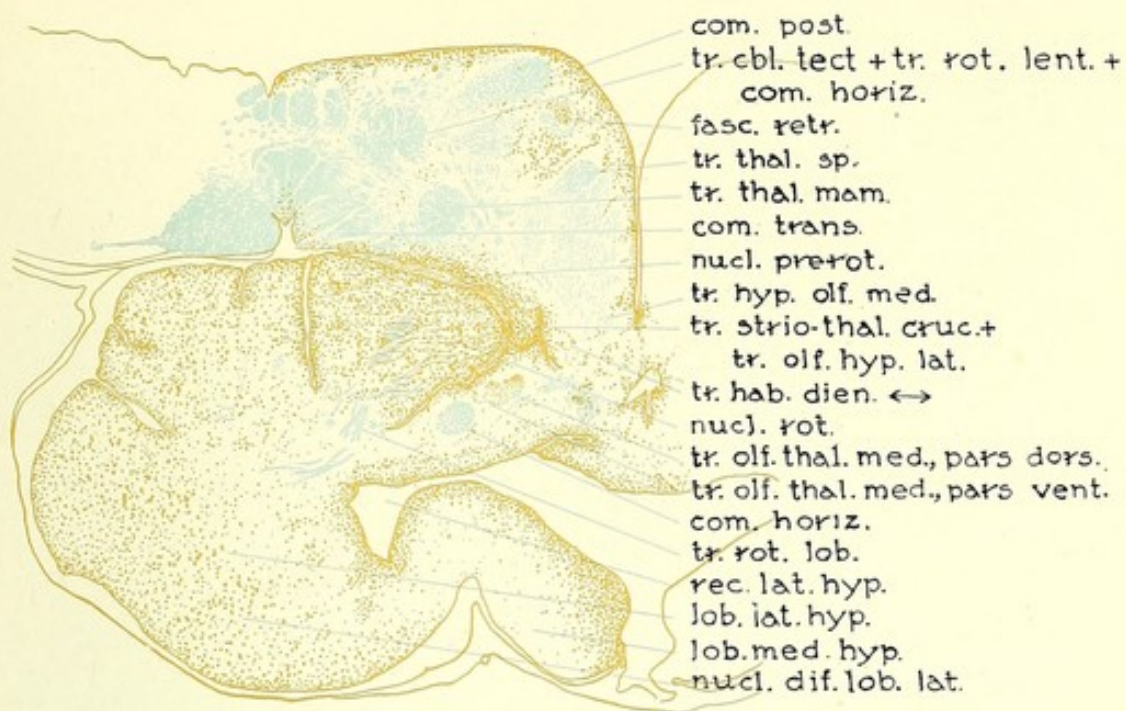 com. post.
tr. cbl. tect + tr. rot. lent. +
com. horiz.
fasc. retr.
tr. thal. sp.
tr. thal. mam.
com. trans.
nucl. prerot.
tr. hyp. olf. med.
tr. strio-thal. cruc. +
tr. olf. hyp. lat.
tr. hab. dien. ↔
nucl. rot.
tr. olf. thal. med., pars dors.
tr. olf. thal. med., pars vent.
com. horiz.
tr. rot. lob.
rec. lat. hyp.
lob. lat. hyp.
lob. med. hyp.
nucl. dif. lob. lat.